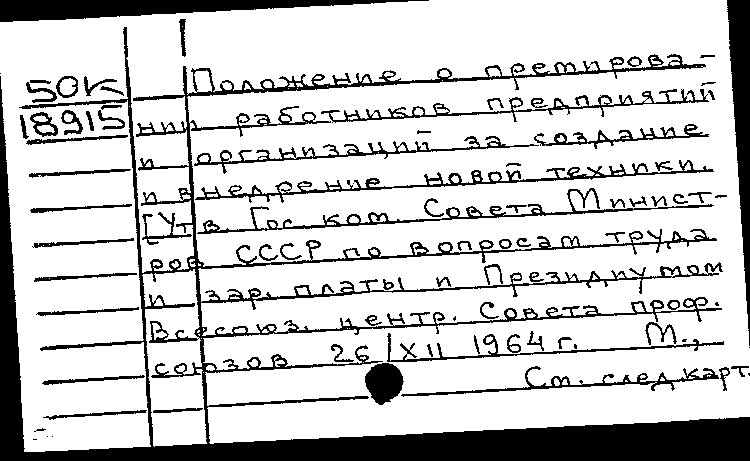 50К
18915
Положение о премирова-
нии работников предприятий
и организаций за создание
и внедрение новой техники.
[Утв. Гос. ком. Совета Минист-
ров СССР по вопросам труда
и зар. платы и Президиумом
Всесоюз. центр. Совета проф.
союзов 26/XII 1964 г. М.,
См. след. карт.